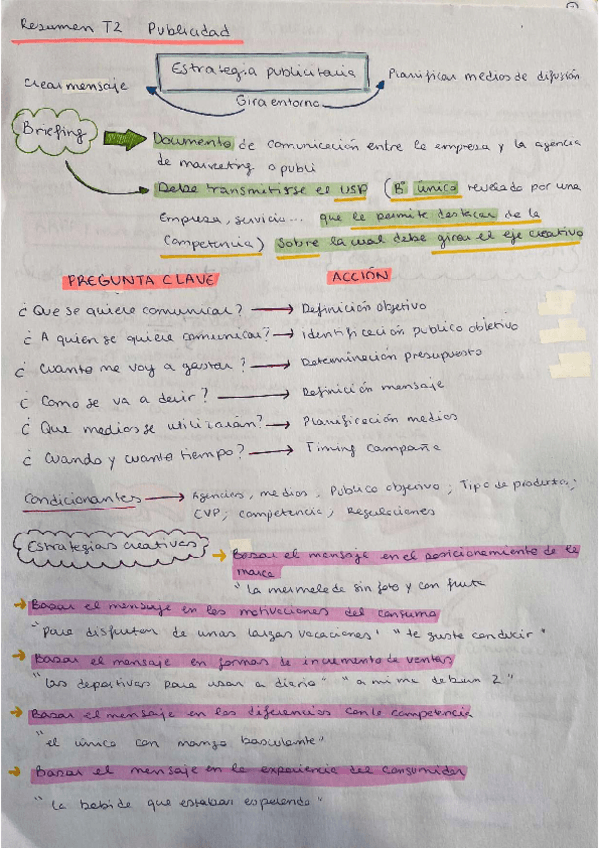 Resumen T2 Publicidad
Estrategia publicitaria
Crear mensaje
Planificar medios de difusión
Gira entorno
Briefing
Documento de comunicación entre la empresa y la agencia
de marketing o publi
Debe transmitirse el USP (Bº único revelado por una
Empresa, servicio... que le permite destacar de la
Competencia) sobre la cual debe girar el eje creativo
PREGUNTA CLAVE
ACCIÓN
¿ Que se quiere comunicar? → Definición objetivo
¿ A quien se quiere comunicar? → Identificación publico objetivo
¿ Cuanto me voy a gastar? → Determinación presupuesto
¿ Como se va a decir? → Definición mensaje
¿ Que medios se utilizarán? → Planificación medios
¿ Cuando y cuanto tiempo? → Timing Campaña
Condicionantes → Agencias, medios, Público objetivo; Tipo de producto;
CVP; competencia, Regulaciones
Estrategias creativas → Basar el mensaje en el posicionamiento de la
marca
"La mermelada sin foto y con fruta
→ Basar el mensaje en las motivaciones del consumo
"Para disfrutar de unas largas vacaciones" "te guste conducir"
→ Basar el mensaje en formas de incremento de ventas
"las deportivas para usar a diario" "a mi me daban 2"
→ Basar el mensaje en las diferencias con la competencia
"el único con mango basculante"
→ Basar el mensaje en la experiencia del consumidor
"la bebida que estabas esperando"